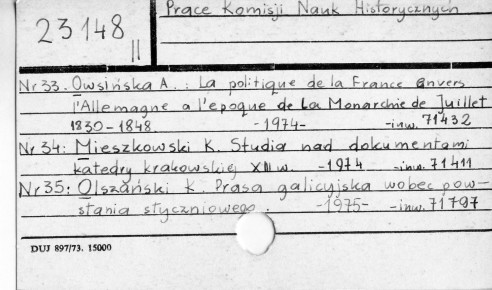 Prace Komisji Nauk Historycznych
23148 II
Nr 33. Owsińska A. : La politique de la France envers
l'Allemagne a l'epoque de la Monarchie de Juillet
1830-1848. -1974- -inw. 71432
Nr 34: Mieszkowski K. Studia nad dokumentami
katedry krakowskiej XIII w. -1974 -inw. 71411
Nr 35: Olszański K. Prasa galicyjska wobec pow-
stania styczniowego. -1975- -inw. 71797
DUJ 897/73. 15000